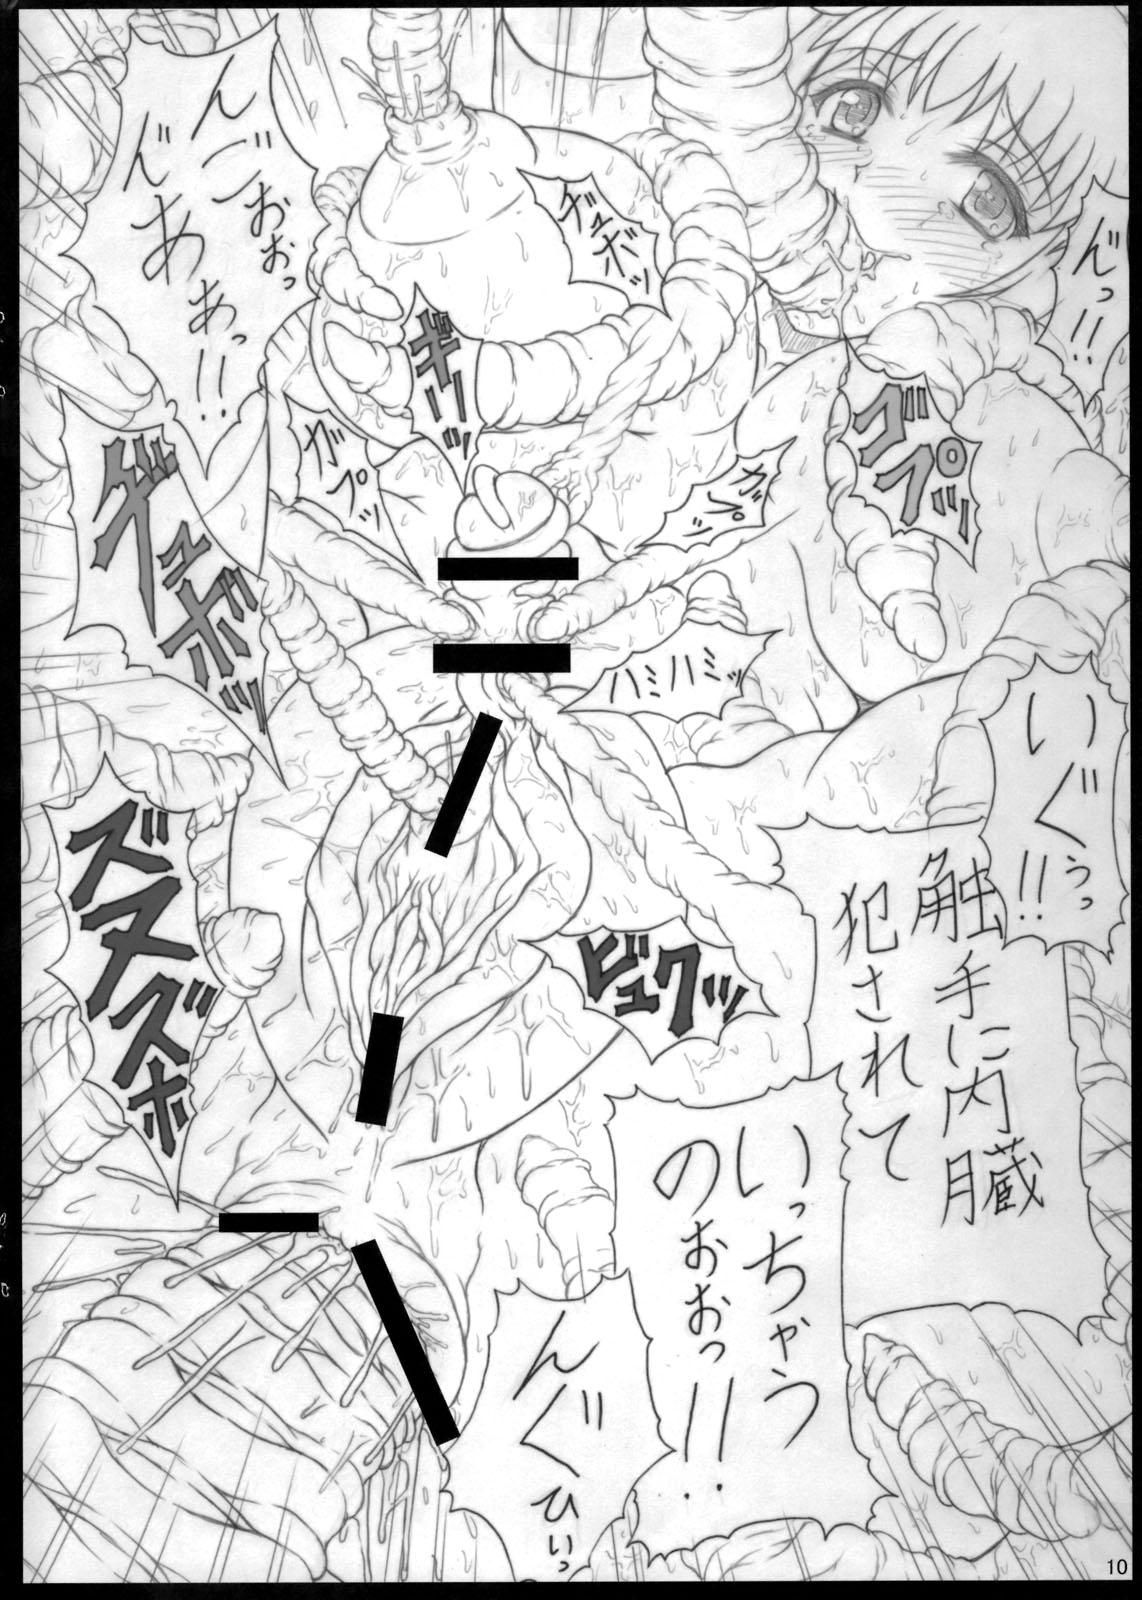 んっ!!
んごおおっ
んあぁっ!!
ギュボッ
ギリッ
グプッ
ガプッ
ガプッ
ギュボッ
ハミハミッ
いぐぅっ!!
触手に内臓
犯されて
ズヌズボ
ビュクッ
いっちゃう
のおおっ!!
んぐひいっ
10